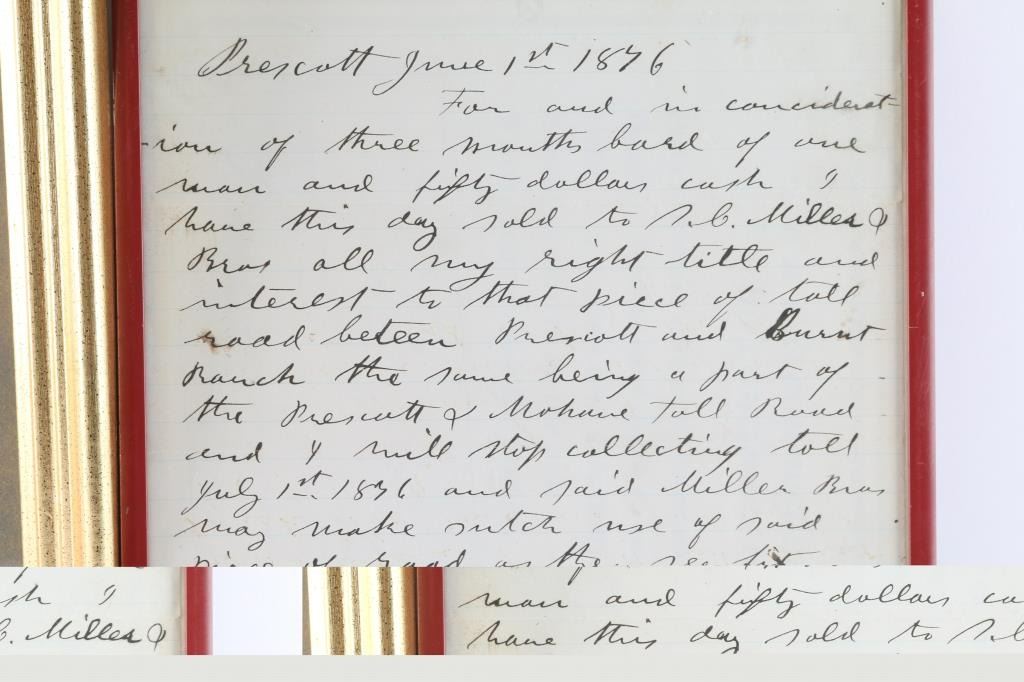 Prescott June 1st 1876
For and in conciderat-
-ion of three months bord of one
man and fifty dollars cash I
have this day sold to S.C. Miller &
Bros all my right title and
interest to that piece of toll
road beteen Prescott and Burnt
Ranch the same being a part of
the Prescott & Mohave Toll Road
and I will stop collecting toll
July 1st 1876 and said Miller Bros
may make sutch use of said
piece of road as the see fit
sh I
C. Miller &
man and fifty dollars ca
have this day sold to S.C